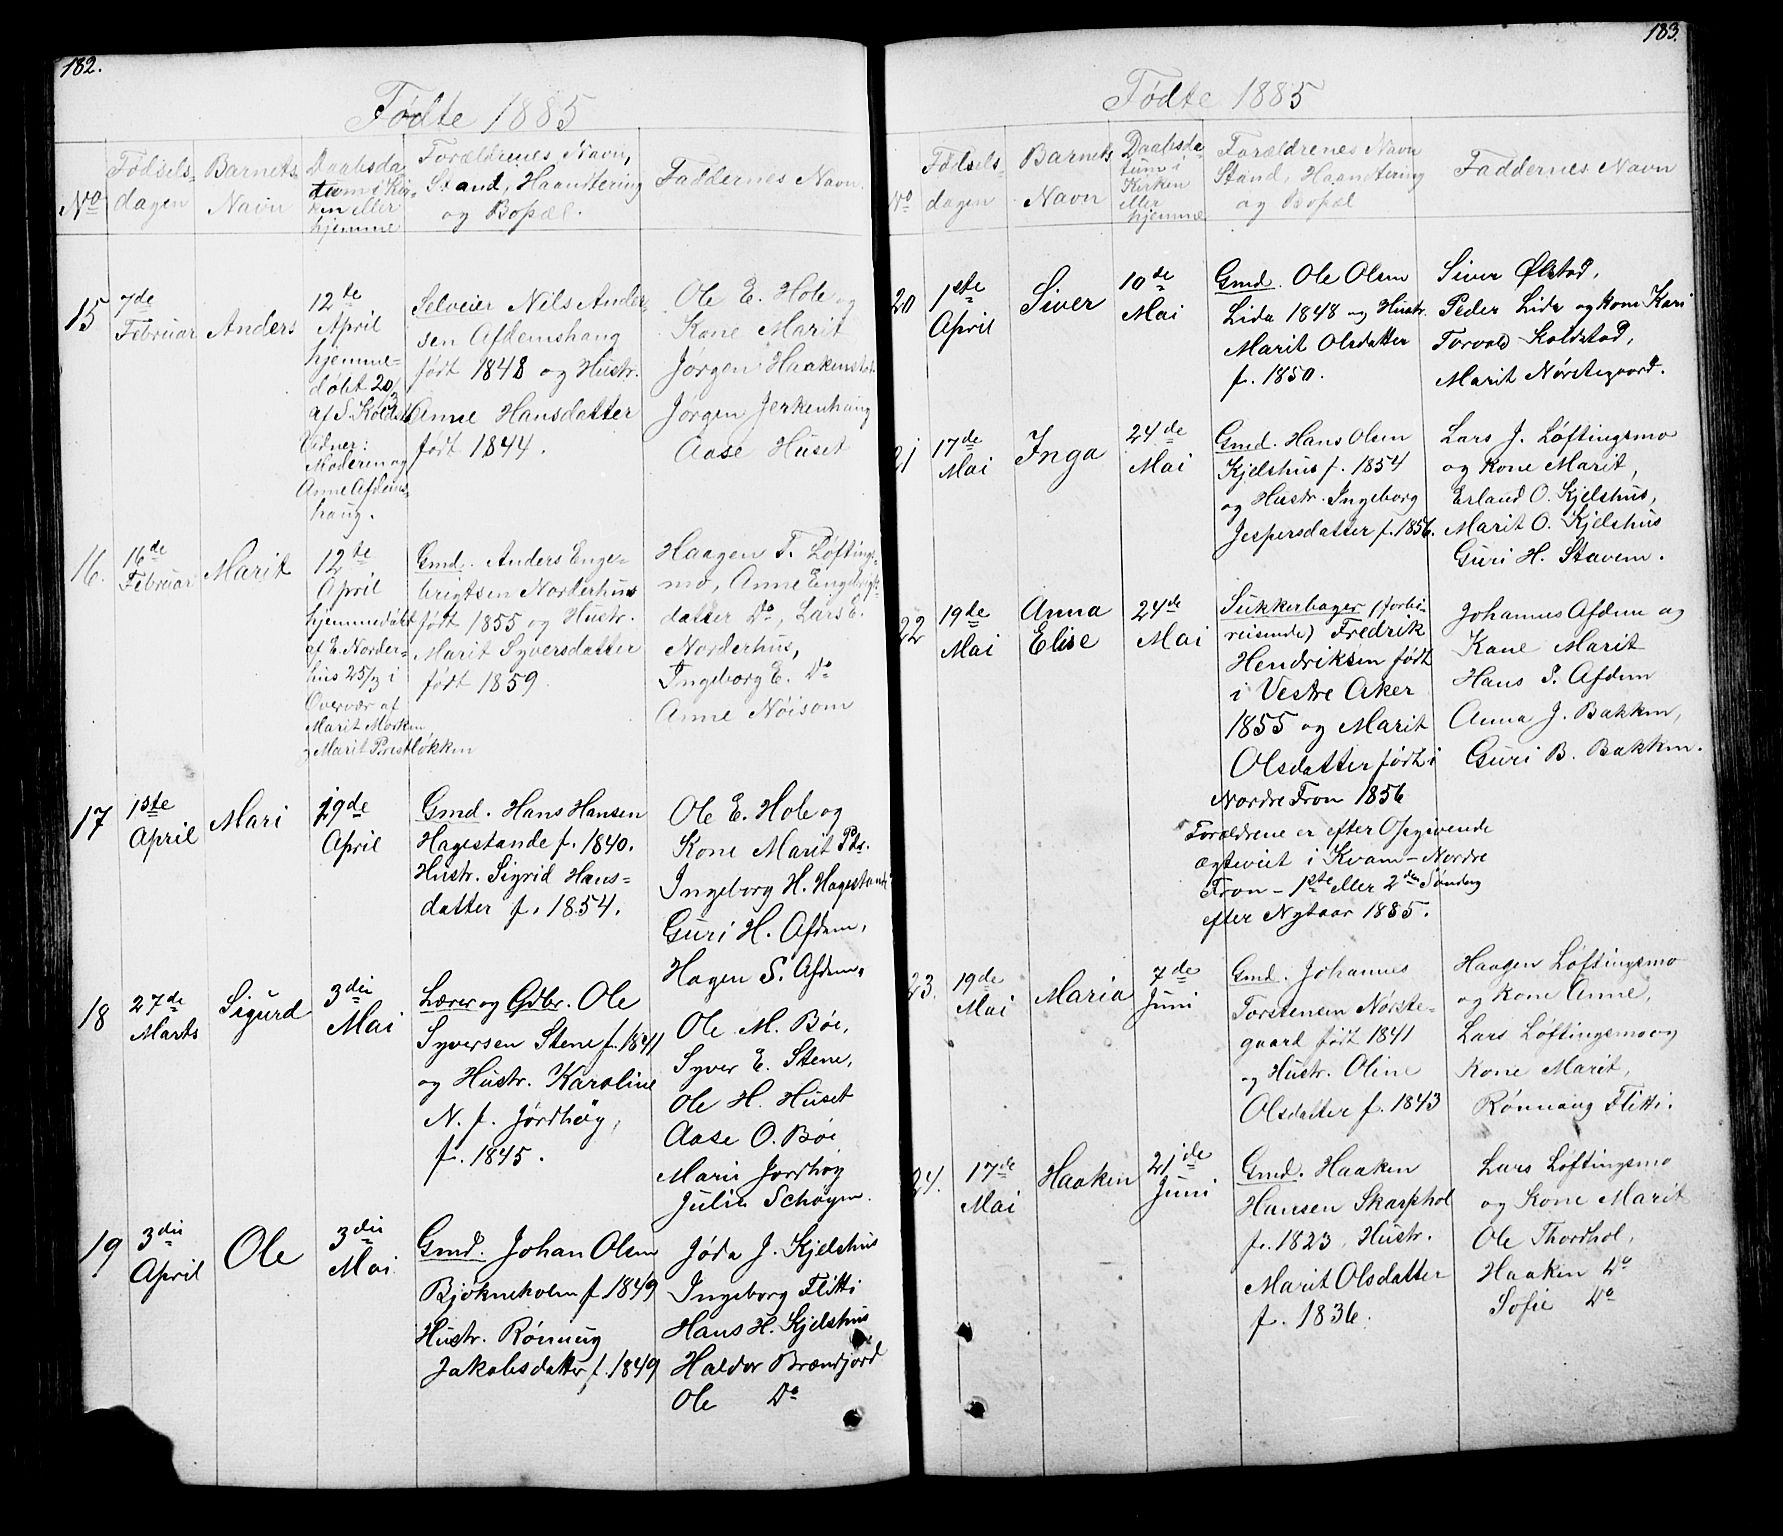 182.
Fødte 1885
No
Fødsels-
dagen
Barnets
Navn
Daabsda-
tum i Kir-
ken eller
hjemme
Forældrenes Navn,
Stand, Haandtering
og Bopæl.
Faddernes Navn.
15
7de
Februar
Anders
12te
April
hjemme-
døbt 20/3
af S. Kolds
Vidner:
Moderen og
Anne Afdems-
haug.
Selveier Nils Ander-
sen Afdemshaug
født 1848 og Hustr.
Anne Hansdatter
født 1844.
Ole E. Hole og
Kone Marit
Jørgen Haakenstad
Jørgen Jerkenhaug
Aase Huset
16.
16de
Februar
Marit
12te
April
hjemmedøbt
af E. Norder-
hus 25/3 i
Overvær af
Marit Morken
og Marit Prestløkken
Gmd. Anders Enge-
brigtsen Norderhus
født 1855 og Hustr.
Marit Syversdatter
født 1859.
Haagen T. Løftings-
mo, Anne Engebrigts-
datter Do, Lars E.
Norderhus,
Ingeborg E. Do
Anne Nöisom
17
1ste
April
Mari
19de
April
Gmd. Hans Hansen
Hagestande f. 1840.
Hustr. Sigrid Hans-
datter f. 1854.
Ole E. Hole og
Kone Marit Pds.
Ingeborg H. Hagestande
Guri H. Afdem,
Hagen S. Afdem.
18
27de
Marts
Sigurd
3die
Mai
Lærer og Gdbr. Ole
Syversen Stene f. 1841
og Hustr. Karoline
N. f. Jørdhøy,
f. 1845.
Ole M. Böe,
Syver E. Stene,
Ole H. Huset
Aase O. Böe
Mari Jordhøy
Julie Schøyen.
19
3die
April
Ole
3die
Mai
Gmd. Johan Olsen
Bjökneholen f. 1849
Hustr. Rönnug
Jakobsdatter f. 1849
Jøda J. Kjelshus
Ingeborg Flitti
Hans H. Kjelshus
Haldor Brændjord
Ole Do
183.
Fødte 1885
No
Fødsels-
dagen
Barnets
Navn
Daabsda-
tum i
Kirken
eller
hjemme
Forældrenes Navn
Stand, Haandtering
og Bopæl
Faddernes Navn
20
1ste
April
Siver
10de
Mai
Gmd. Ole Olsen
Lida 1848 og Hustr.
Marit Olsdatter
f. 1850.
Siver Ølstad,
Peder Lida og kone Kari
Torvald Koldstad,
Marit Nørstegaard.
21
17de
Mai
Inga
24de
Mai
Gmd. Hans Olsen
Kjelshus f. 1854
og Hustr. Ingeborg
Jespersdatter f. 1856.
Lars J. Løftingsmo
og Kone Marit,
Erland O. Kjelshus,
Marit O. Kjelshus
Guri H. Stavem.
22
19de
Mai
Anna
Elise
24de
Mai
Sukkerbager (forbi-
reisende) Fredrik
Hendriksen født
i Vestre Aker
1855 og Marit
Olsdatter født i
Nordre Fron 1856
Forældrene er efter Opgivende
ægteviet i Kvam - Nordre
Fron - 1ste eller 2den Søndag
efter Nytaar 1885.
Johannes Afdem og
Kone Marit
Hans S. Afdem
Anna J. Bakken,
Guri B. Bakken.
23.
19de
Mai
Maria
7de
Juni
Gmd. Johannes
Torstensen Nørste-
gaard født 1841
og Hustr. Oline
Olsdatter f. 1843
Haagen Løftingsmo
og Kone Anne,
Lars Løftingsmo og
Kone Marit,
Rönnaug Flitti.
24.
17de
Mai
Haaken
21de
Juni
Gmd. Haaken
Hansen Skarphol
f. 1823, Hustr.
Marit Olsdatter
f. 1836.
Lars Løftingsmo
og Kone Marit
Ole Thordhol,
Haaken Do
Sofie Do